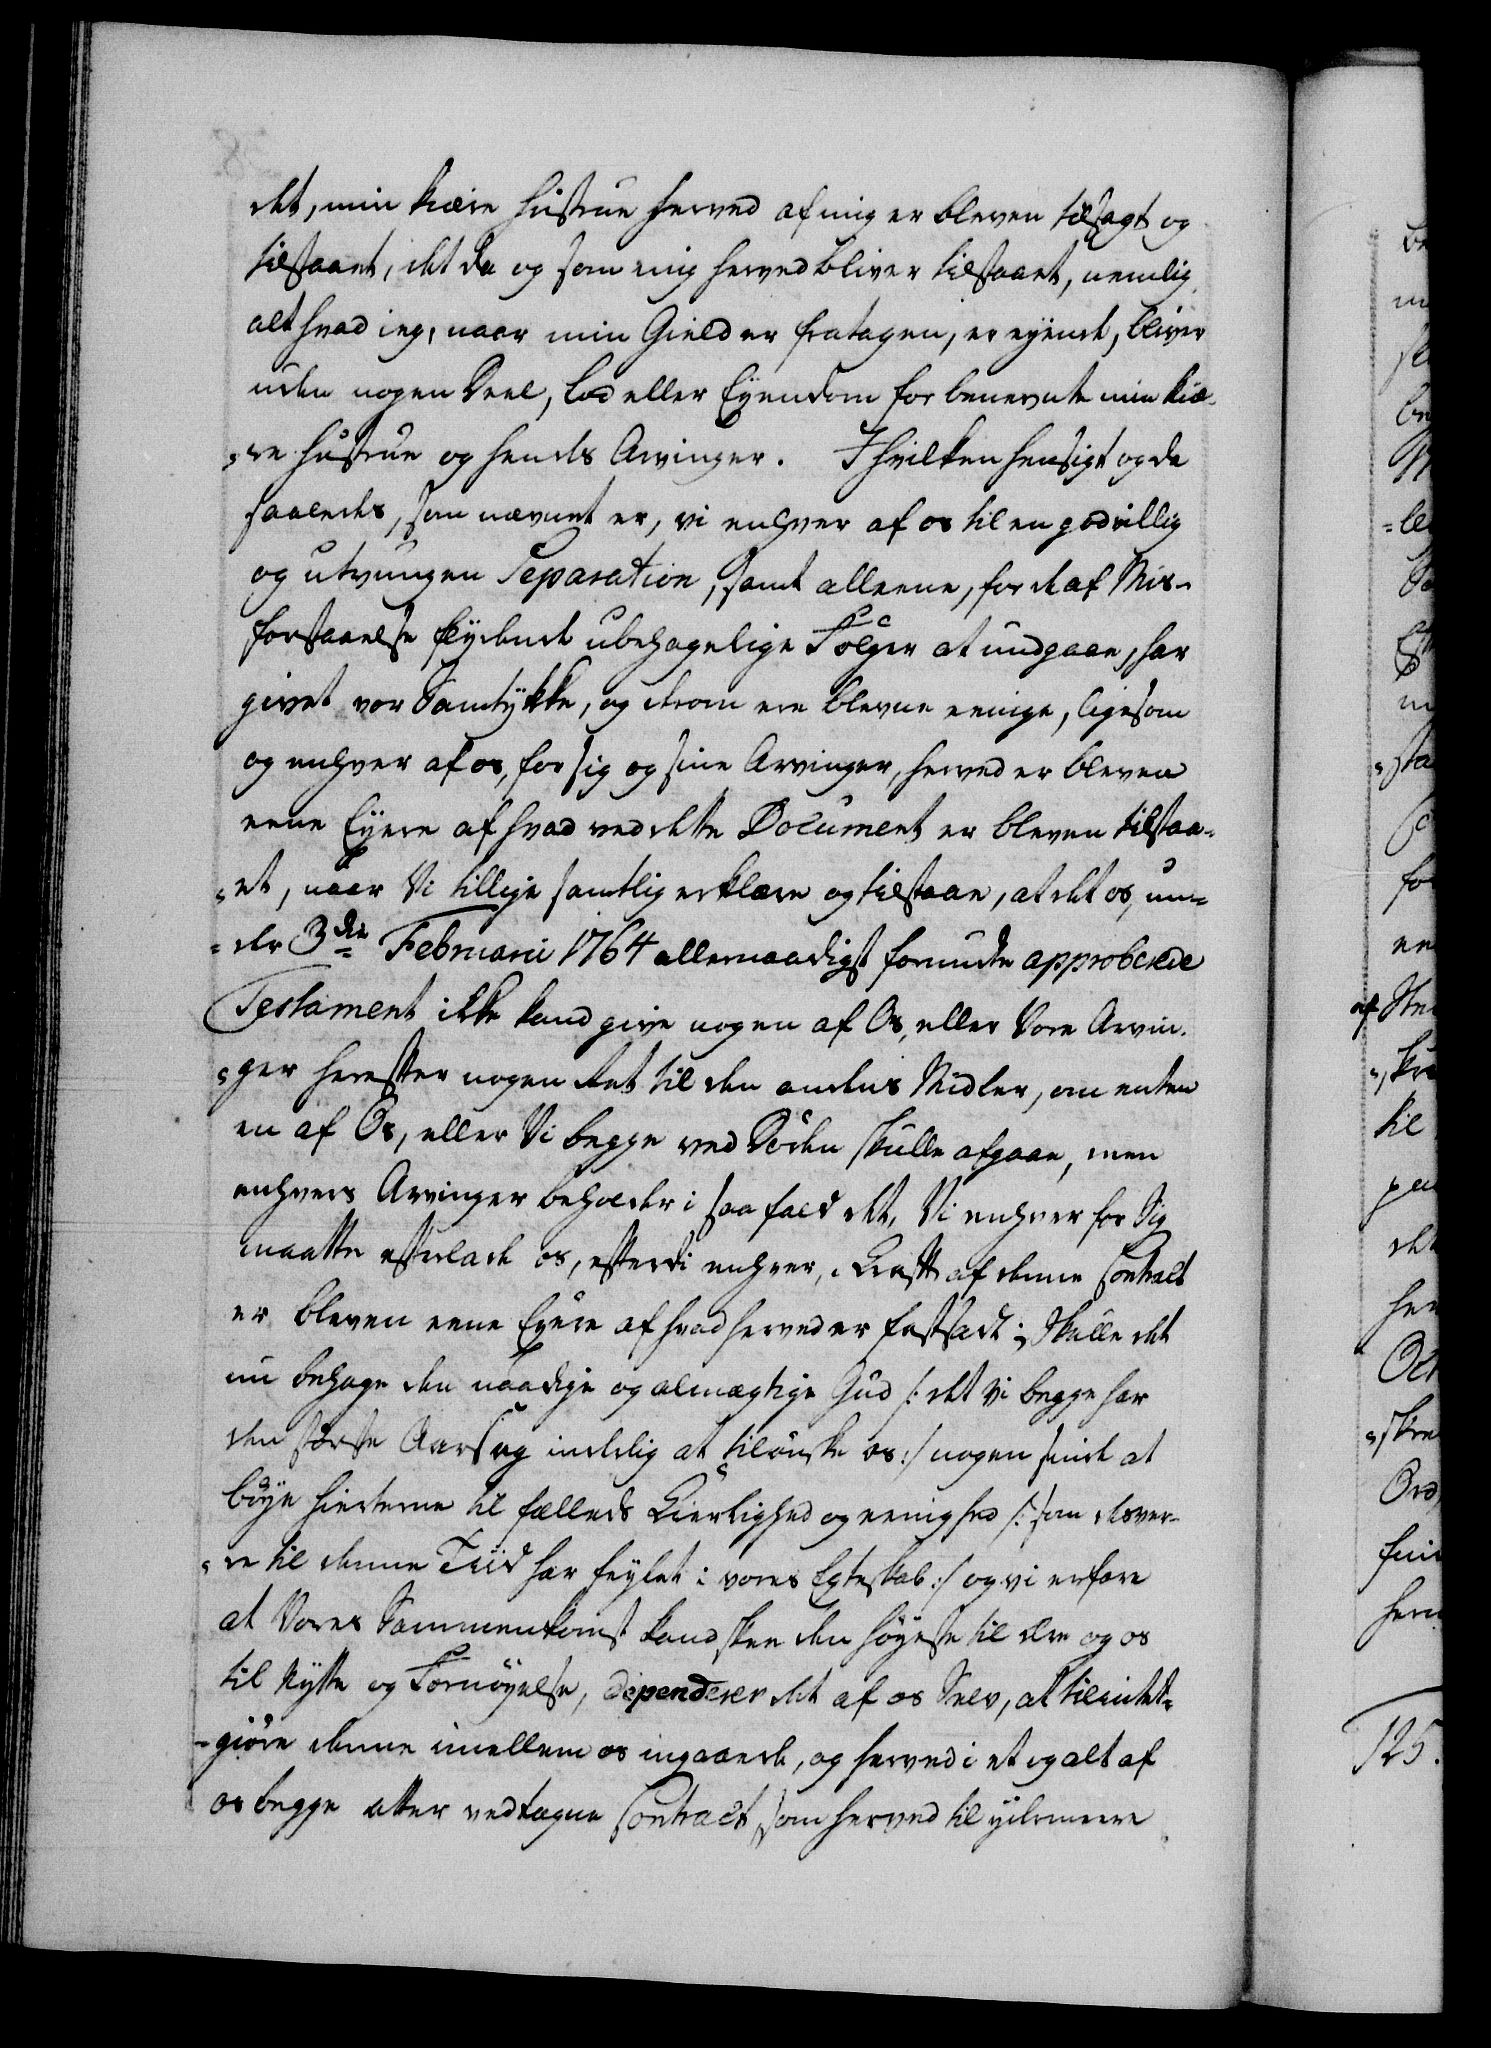 det, min kiere Hustrue herved af mig er bleven tilsagt og
tilstaaet, det da og som mig herved bliver tilstaaet, nemlig
alt hvad ieg, naar min Gield er fratagen, er eyende, bliver
uden nogen Deel, Lod eller Eyendom for benevnte min kiæ-
re Hustrue og hendes Arvinger. I hvilken Hensigt og da
saaledes, som nævnet er, vi enhver af os til en godvillig
og utvungen Separation, samt alleene, for de af Mis-
forstaaelse flydende ubehagelige Følger at undgaae, har
givet vor Samtykke, og derom ere blevne eenige, ligesom
og enhver af os, for sig og sine Arvinger, herved er bleven
eene Eyere af hvad ved dette Document er bleven tilstaa-
et, naar Vi tillige samtlig erklære og tilstaae, at det os, un-
der 3die Februarii 1764 allernaadigst forundte approberede
Testament ikke kand give nogen af Os, eller Vore Arvin-
ger herefter nogen Ret til den andens Midler, om enten
en af Os, eller Vi begge ved Døden skulle afgaae, men
enhvers Arvinger beholder i saa fald det, Vi enhver for Sig
maatte efterlade os, efterdi enhver, i Kraft af denne Contract
er bleven eene Eyere af hvad herved er fastsadt; Skulle det
nu behage den naadige og almægtige Gud /: det Vi begge har
den største Aarsag inderlig at tilønske os :/ nogen sinde at
bøye Hierterne til fælleds Kierlighed og eenighed /: som desver-
re til denne Tiid har feylet i vores Egteskab :/ og vi erfare
at Vores Sammenkomst kand skee den høyeste til Ære og os
til Nytte og Fornøyelse, dependerer det af os Selv, at tilintet-
giøre denne imellem os ingaaede, og herved i et og alt af
os begge atter vedtagne Contract, som herved til ydermeere